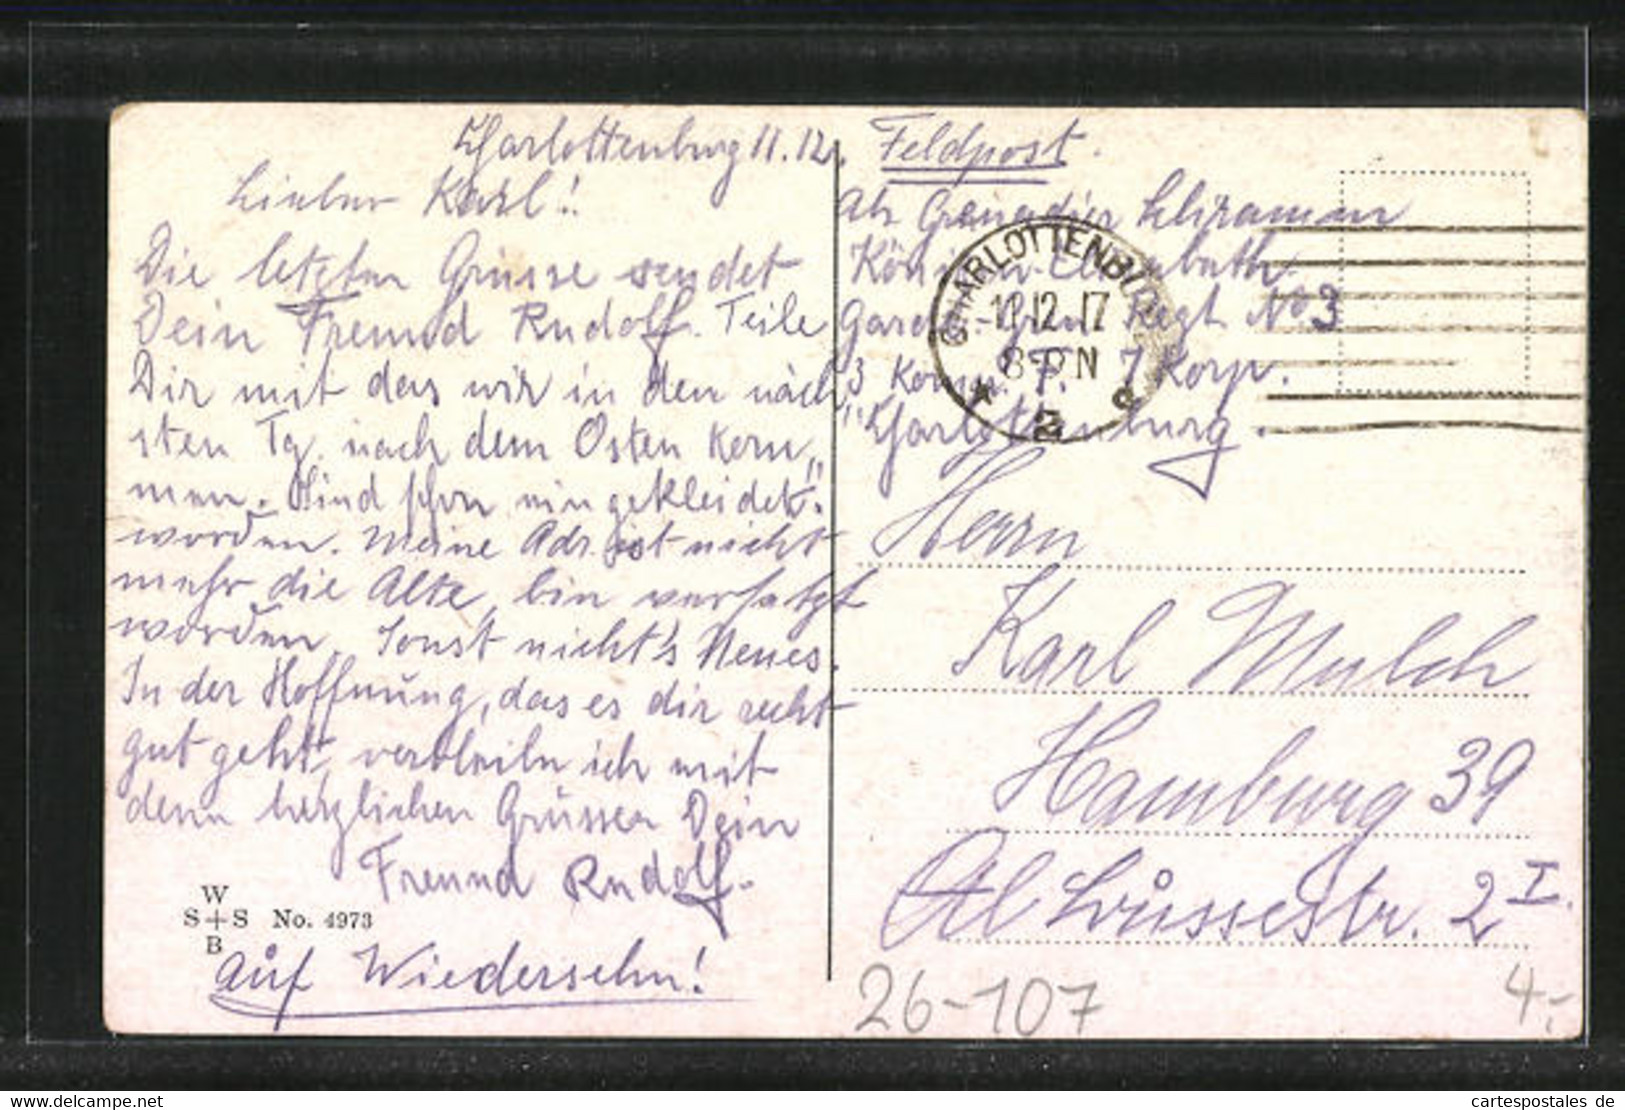 Charlottenburg 11.12.
Lieber Karl!
Die letzten Grüsse sendet
Dein Freund Rudolf. Teile
Dir mit das wir in den näch
sten Tg. nach dem Osten kom„
men. Sind schon eingekleidet.
worden. Meine Adr. ist nicht
mehr die Alte, bin versetzt
worden. Sonst nicht's Neues.
In der Hoffnung, das es dir recht
gut geht, verbleibe ich mit
den herzlichen Grüssen Dein
Freund Rudolf.
Auf Wiedersehn!
W
S+S No. 4973
B
Feldpost.
Abs Grenadier Schramm
Königin Elisabeth
Garde-Gren Regt No 3
3 Komp. 7 Korp.
Charlottenburg.
CHARLOTTENBURG
12.12.17
8-9 N
* 2 d
Herrn
Karl Mulch
Hamburg 39
Al. 2 I.
26-107
4,-
www.delcampe.net
cartespostales de